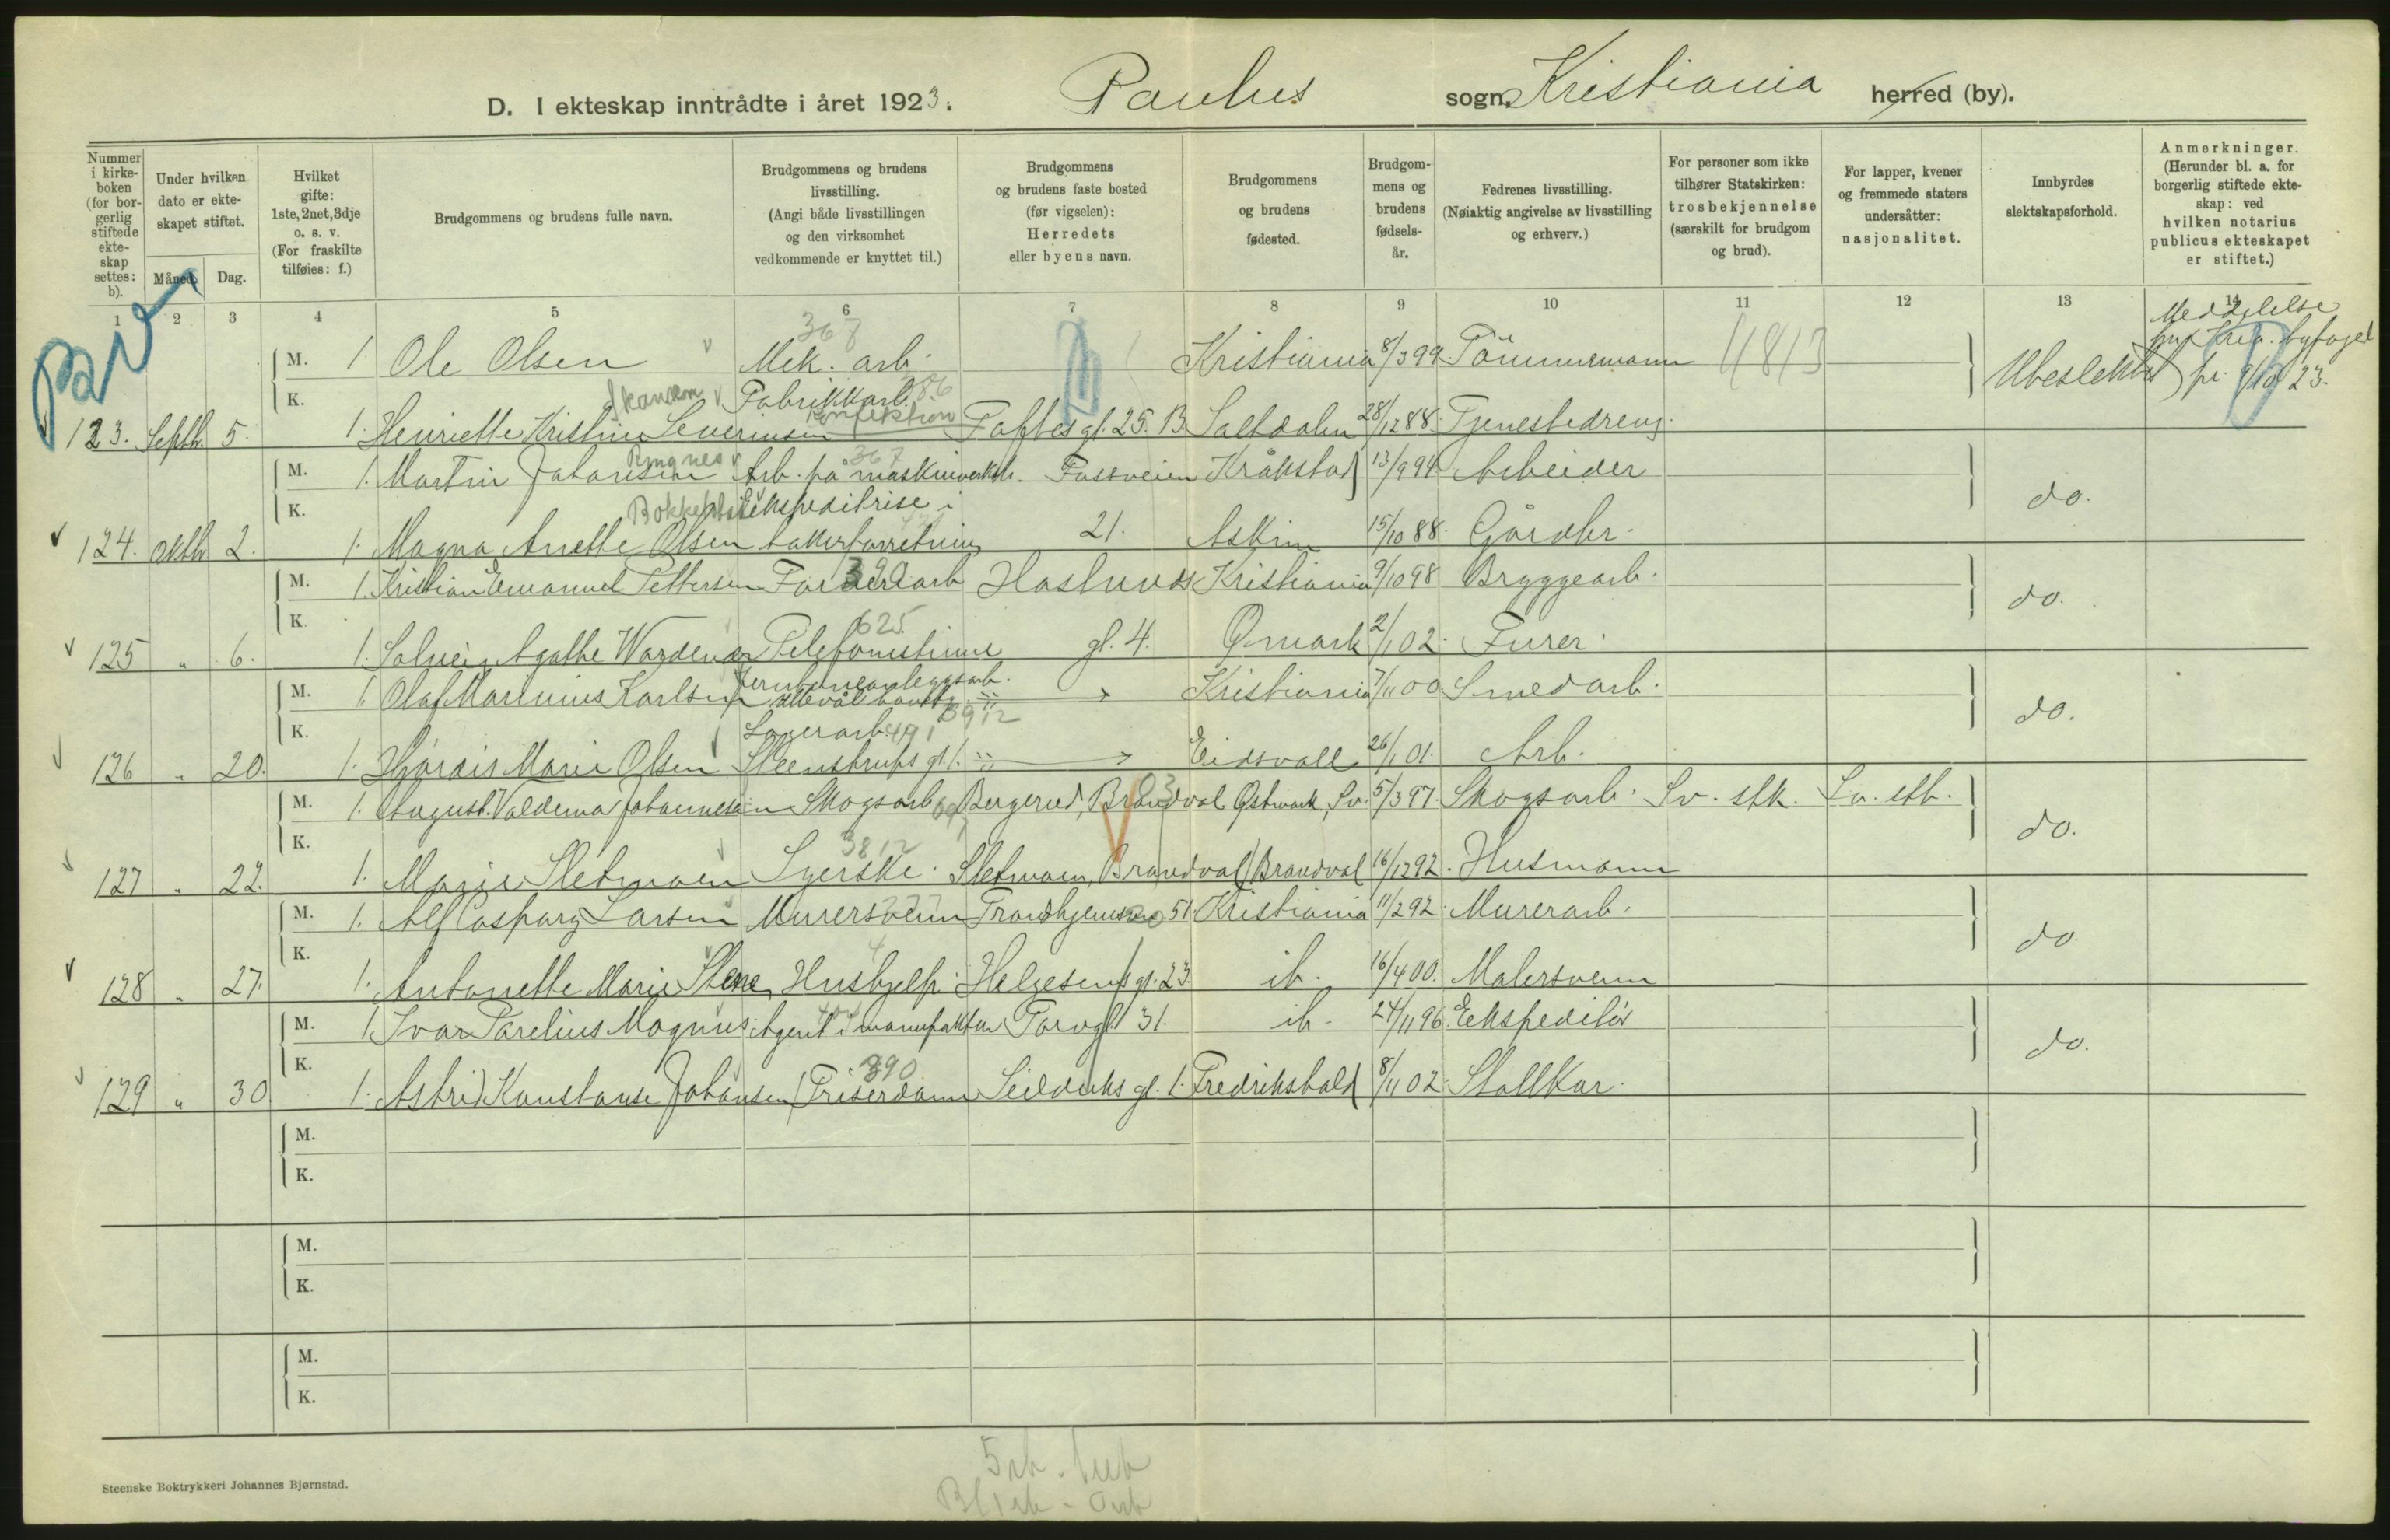 D. I ekteskap inntrådte i året 1923. Paulus sogn, Kristiania herred (by).
Nummer i kirke-boken (for bor-gerlig stiftede ekte-skap settes: b).
Under hvilken dato er ekte-skapet stiftet.
Måned. Dag.
Hvilket gifte: 1ste, 2net, 3dje o. s. v. (For fraskilte tilføies: f.)
Brudgommens og brudens fulle navn.
Brudgommens og brudens livsstilling. (Angi både livsstillingen og den virksomhet vedkommende er knyttet til.)
Brudgommens og brudens faste bosted (før vigselen): Herredets eller byens navn.
Brudgommens og brudens fødested.
Brudgom-mens og brudens fødsels-år.
Fedrenes livsstilling. (Nøiaktig angivelse av livsstilling og erhverv.)
For personer som ikke tilhører Statskirken: trosbekjennelse (særskilt for brudgom og brud).
For lapper, kvener og fremmede staters undersåtter: nasjonalitet.
Innbyrdes slektskapsforhold.
Anmerkninger. (Herunder bl. a. for borgerlig stiftede ekte-skap: ved hvilken notarius publicus ekteskapet er stiftet.)
1 2 3 4 5 6 7 8 9 10 11 12 13 14
367 Meddelelse
M. 1 Ole Olsen Mek. arb. Kristiania 8/3 99. Tömmermann 11813 Ubeslektet fra Kria. byfoged
K. Fabrikkarb. 86 pr. 9/10 23.
Konfektion
123. Septb. 5. 1. Henriette Kristine Severinsen Toftes gt. 25. B. Saltdalen 28/12 88. Tjenestedreng.
Ringnes 367
M. 1. Martin Johansen Arb. på maskinverkst. Fossveien Kråkstad 13/9 94 Arbeider do.
K. ekspeditrise i
124. Oktb. 2. 1. Magna Anette Olsen bakerforretning 21. Askim 15/10 88. Gårdbr.
M. 1. Kristian Emanuel Pettersen 390 Haslunds Kristiania 9/10 98 Bryggearb. do.
K. 625
125 " 6. 1. Solveig Agathe Wardenær Telefonistinne gt. 4. Ømark 2/1 02. Furer.
Jernbaneanleggsarb.
M. 1. Olaf Marinius Karlsen Kristiania 7/11 00 Smedarb. do.
K. Lagerarb. 491
126 " 20. 1. Hjørdis Marie Olsen Steenstrups gt. 1. Eidsvoll 26/1 01. Arb.
M. 1. August Valdemar Johannesen Skogsarb. Bergerud, Brandval Östmark, Sv. 5/3 97. Skogsarb. Sv. stk. Sv. stb. do.
K. 3812
127 " 22. 1. Marie Sletmoen Syerske. Sletmoen, Brandval Brandval 16/12 92. Husmann
M. 1. Alf Casparg Larsen Murersvenn Trondhjemsvn 51 Kristiania 11/2 92. Murerarb. do.
K.
128 " 27. 1. Antonette Marie Stene Hushjelp. Helgesens gt. 23. ib. 16/4 00. Malersvenn
M. 1. Ivar Parelius Magnus Agent i manufaktur Torvgt 31. ib. 24/11 96. Ekspeditør do.
K. 390
129 " 30 1. Astrid Konstanse Johansen Friserdame Seilduks gt. 1. Fredrikshald 8/11 02. Stallkar.
M.
K.
M.
K.
M.
K.
Steenske Boktrykkeri Johannes Bjørnstad.